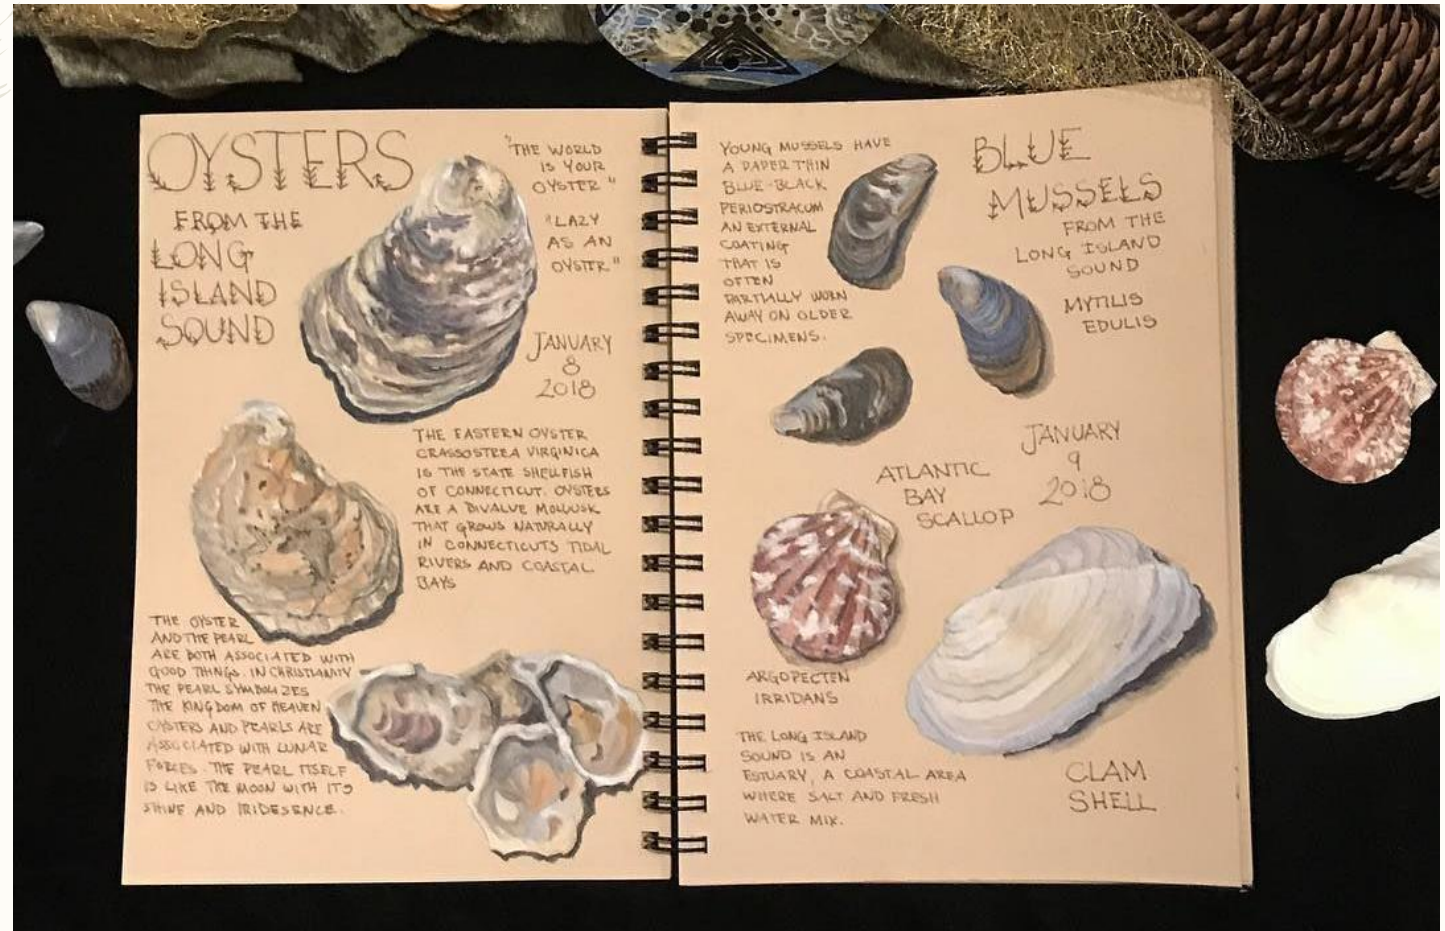 OYSTERS
FROM THE
LONG
ISLAND
SOUND
"THE WORLD
IS YOUR
OYSTER"
"LAZY
AS AN
OYSTER"
JANUARY
8
2018
THE EASTERN OYSTER
CRASSOSTREA VIRGINICA
IS THE STATE SHELLFISH
OF CONNECTICUT. OYSTERS
ARE A BIVALVE MOLLUSK
THAT GROWS NATURALLY
IN CONNECTICUTS TIDAL
RIVERS AND COASTAL
BAYS
THE OYSTER
AND THE PEARL
ARE BOTH ASSOCIATED WITH
GOOD THINGS. IN CHRISTIANITY
THE PEARL SYMBOLIZES
THE KINGDOM OF HEAVEN
OYSTERS AND PEARLS ARE
ASSOCIATED WITH LUNAR
FORCES. THE PEARL ITSELF
IS LIKE THE MOON WITH ITS
SHINE AND IRIDESENCE.
YOUNG MUSSELS HAVE
A PAPER THIN
BLUE-BLACK
PERIOSTRACUM
AN EXTERNAL
COATING
THAT IS
OFTEN
PARTIALLY WORN
AWAY ON OLDER
SPECIMENS.
BLUE
MUSSELS
FROM THE
LONG ISLAND
SOUND
MYTILIS
EDULIS
JANUARY
9
2018
ATLANTIC
BAY
SCALLOP
ARGOPECTEN
IRRIDANS
THE LONG ISLAND
SOUND IS AN
ESTUARY, A COASTAL AREA
WHERE SALT AND FRESH
WATER MIX.
CLAM
SHELL